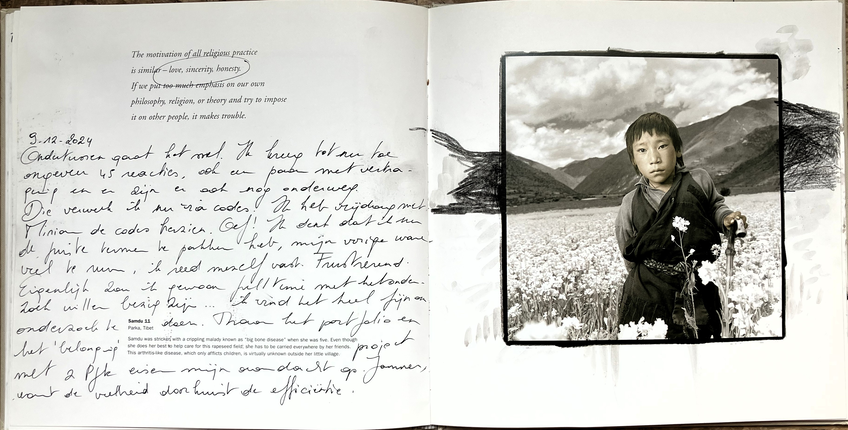 The motivation of all religious practice
is similar – love, sincerity, honesty.
If we put too much emphasis on our own
philosophy, religion, or theory and try to impose
it on other people, it makes trouble.
9-12-2024
Ondertussen gaat het wel. Ik kreeg tot nu toe
ongeveer 45 reacties, ook een paar met
en er zijn er ook nog onderweg.
Die verwerk ik nu via codes. Ik heb vrijdag met
Miriam de codes herzien. Oef! Ik denk dat ik nu
de juiste termen te pakken heb, mijn vorige waren
veel te ruim, ik reed mezelf vast. Frustrerend.
Eigenlijk zou ik gewoon full time met het onder-
zoek willen bezig zijn ... ik vind het heel fijn om
onderzoek te doen. Maar het portfolio en
het 'belonging' project
met 2 eisen mijn aandacht op. Jammer,
want de veelheid doorkruist de efficiëntie.
Samdu 11
Parka, Tibet
Samdu was stricken with a crippling malady known as "big bone disease" when she was five. Even though
she does her best to help care for this rapeseed field, she has to be carried everywhere by her friends.
This arthritis-like disease, which only affects children, is virtually unknown outside her little village.